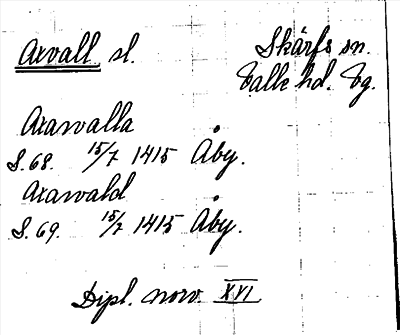 Arvall sl. Skärfs sn.
Valle hd. Vg.
Arawalla
S. 68. 15/7 1415 Åby.
Arawald
S. 69. 15/7 1415 Åby.
Dipl. norv. XVI